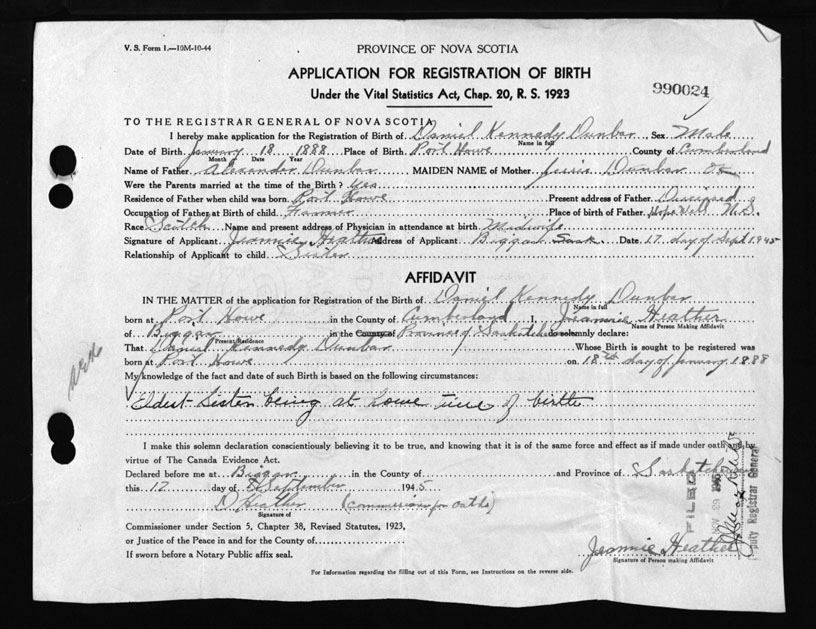 V. S. Form 1.—10M-10-44
PROVINCE OF NOVA SCOTIA
APPLICATION FOR REGISTRATION OF BIRTH
Under the Vital Statistics Act, Chap. 20, R. S. 1923
990024
TO THE REGISTRAR GENERAL OF NOVA SCOTIA
I hereby make application for the Registration of Birth of Daniel Kennedy Dunbar, Sex Male
Name in full
Date of Birth January 18 1888 Place of Birth Port Howe County of Cumberland
Month Date Year
Name of Father Alexander Dunbar MAIDEN NAME of Mother Dunbar
Were the Parents married at the time of the Birth? Yes
Residence of Father when child was born. Port Howe Present address of Father Deceased
Occupation of Father at Birth of child. Farmer Place of birth of Father. Hopewell N.S.
Race Scotch Name and present address of Physician in attendance at birth Midwife
Signature of Applicant Jeannie Heather Address of Applicant Biggar Sask. Date. 17 day of Sept 1945
Relationship of Applicant to child Sister
AFFIDAVIT
IN THE MATTER of the application for Registration of the Birth of Daniel Kennedy Dunbar
Name in full
born at Port Howe in the County of Cumberland I, Jeannie Heather
Name of Person Making Affidavit
of Biggar in the County of Province of Saskatchewan do solemnly declare:
Present Residence
That Daniel Kennedy Dunbar Whose Birth is sought to be registered was
born at Port Howe on 18th day of January 1888
My knowledge of the fact and date of such Birth is based on the following circumstances:
Eldest Sister being at home time of birth
I make this solemn declaration conscientiously believing it to be true, and knowing that it is of the same force and effect as if made under oath and by
virtue of The Canada Evidence Act.
Declared before me at Biggar in the County of and Province of Saskatchewan
this 17 day of September 1945
D Heather (Commissioner for Oaths)
Signature of
Commissioner under Section 5, Chapter 38, Revised Statutes, 1923,
or Justice of the Peace in and for the County of
If sworn before a Notary Public affix seal.
Jeannie Heather
Signature of Person making Affidavit
FILED
NOV 29 1945
Deputy Registrar General
For Information regarding the filling out of this Form, see Instructions on the reverse side.